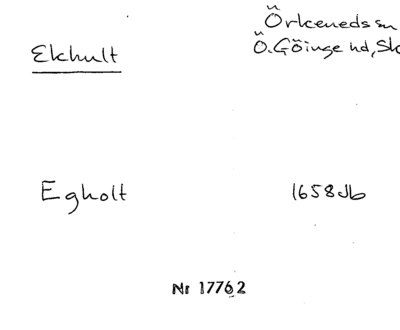 Örkeneds sn
Ekhult
Ö. Göinge hd, Sk
Egholt
1658 Jb
Nr 17762